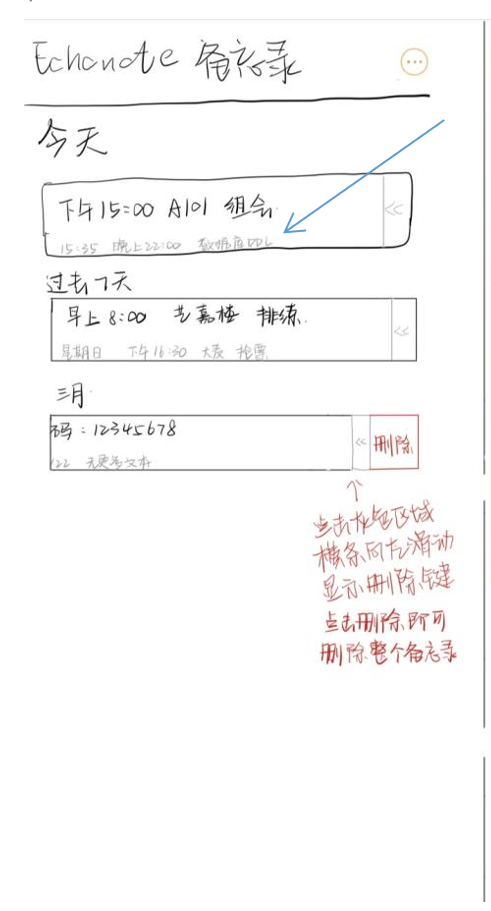 Echonote 备忘录
今天
下午15:00 A101 组会
<<
15:35 晚上22:00 数据库DDL
过去7天
早上8:00 艺嘉楼 排练
<<
星期日 下午16:30 大麦 抢票
三月
码:12345678
<< 删除
122 无更多文本
点击灰色区域
横条向左滑动
显示删除键
点击删除即可
删除整个备忘录